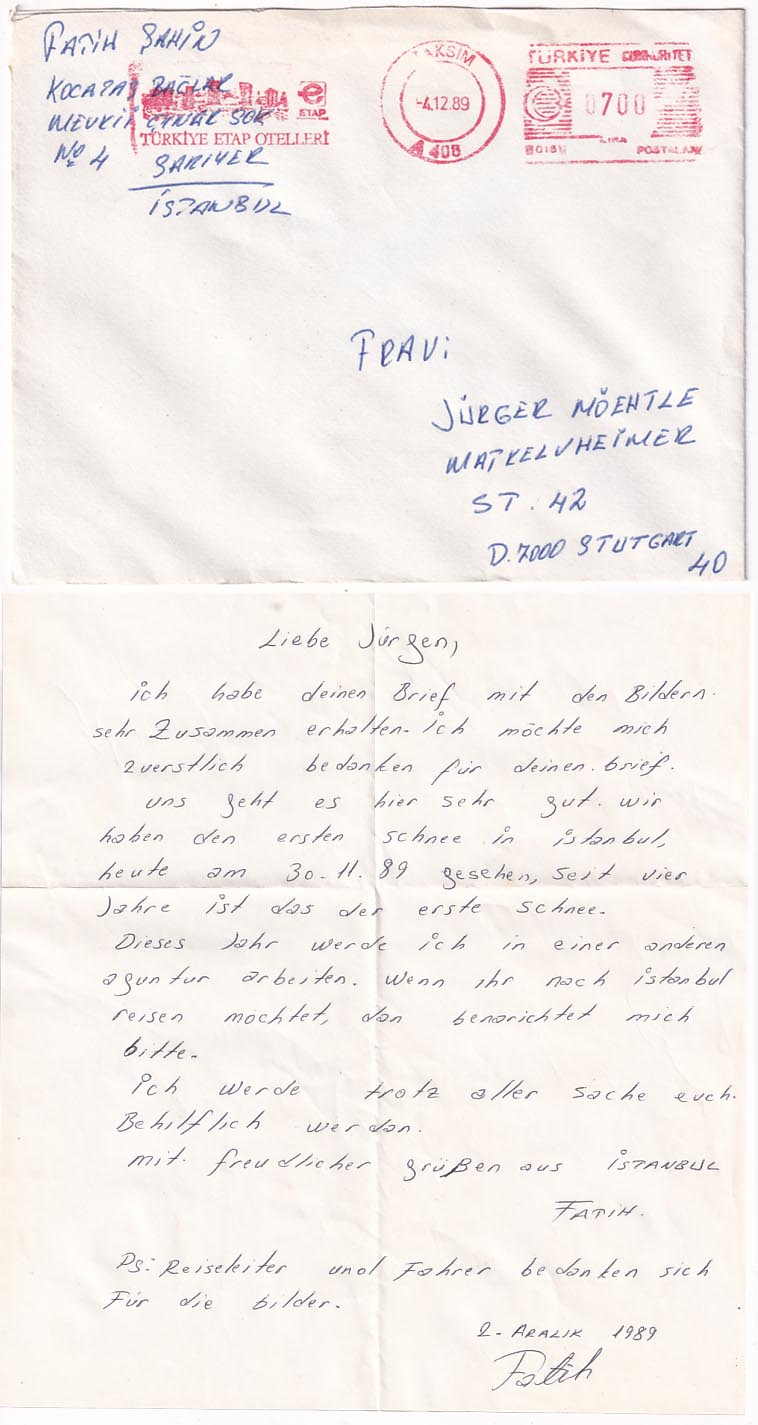 FATİH ŞAHİN
KOCATAŞ BAĞLAR
MEVKİİ ÇINAR SOK
No 4 SARIYER
İSTANBUL
ETAP
TÜRKİYE ETAP OTELLERİ
TAKSİM
-4.12.89
A 408
TÜRKİYE CUMHURİYETİ
0700
LIRA
POSTALARI
FRAVi
JÜRGER MÖEHTLE
MATKELVHEİMER
ST. 42
D.7000 STUTGART
40
Liebe Jürgen,
ich habe deinen Brief mit den Bildern.
sehr Zusammen erhalten. ich möchte mich
zuerstlich bedanken für deinen. brief.
uns geht es hier sehr gut. wir
haben den ersten schnee in istanbul,
heute am 30-11.89 gesehen, seit vier
Jahre ist das der erste schnee.
Dieses Jahr werde ich in einer anderen
aguntur arbeiten. wenn ihr nach istanbul
reisen möchtet, dan benarichtet mich
bitte.
ich werde trotz aller sache euch.
Behilflich werdan.
mit. freudlicher grüßen aus İSTANBUL
FATIH.
Ps: Reiseleiter und Fahrer bedanken sich
Für die bilder.
2- ARALIK 1989
Fatih